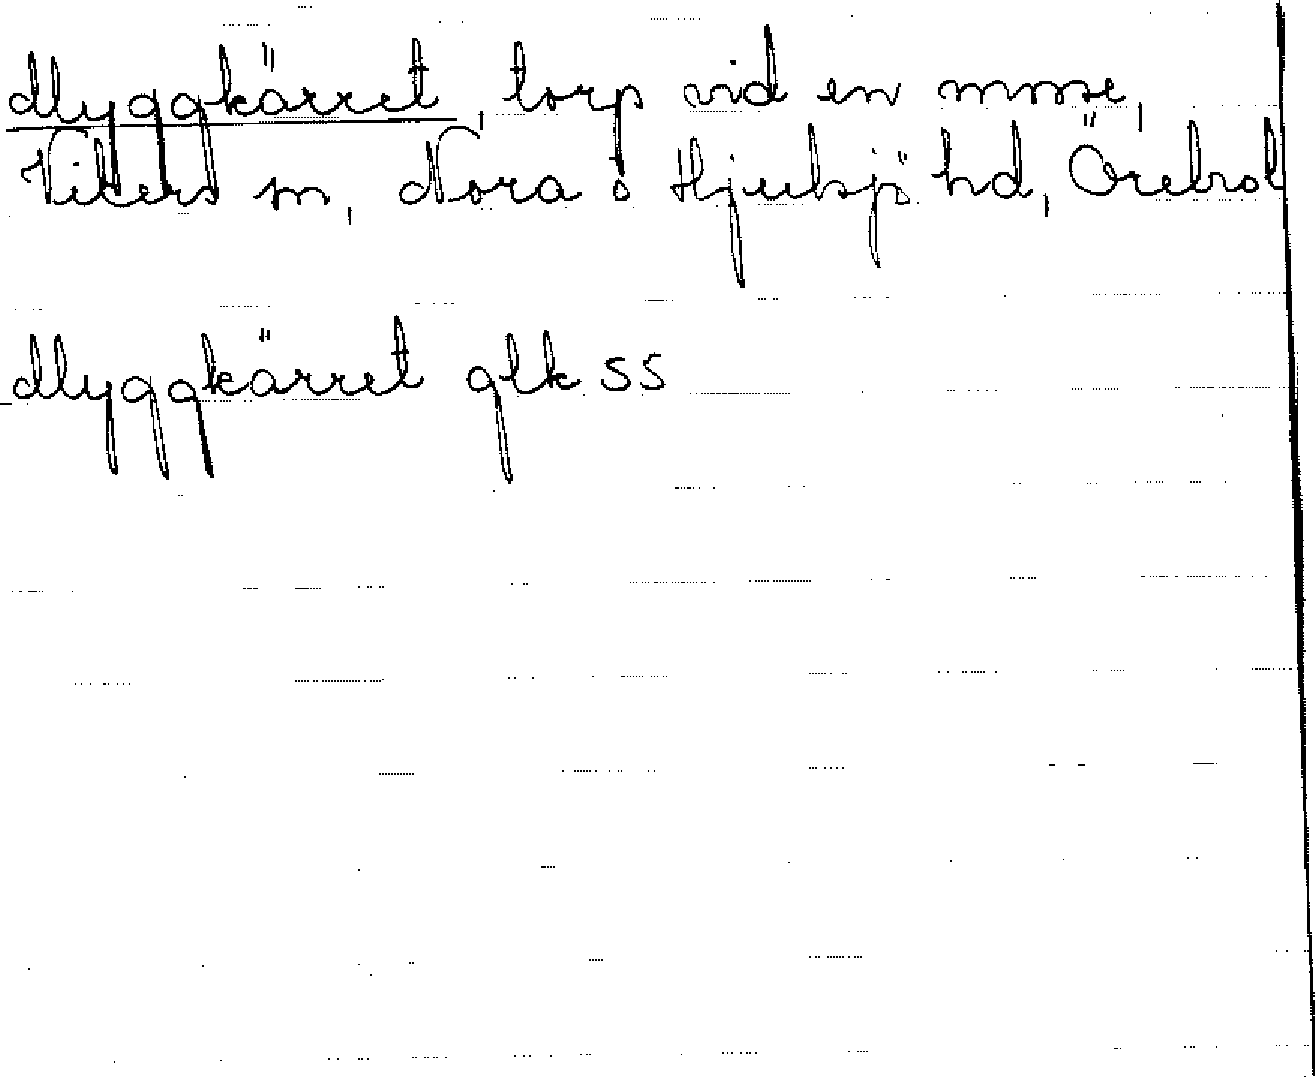 Myggkärret, torp vid en mosse,
Vikers sn, Nora o Hjulsjö hd, Örebro l
Myggkärret glk SS